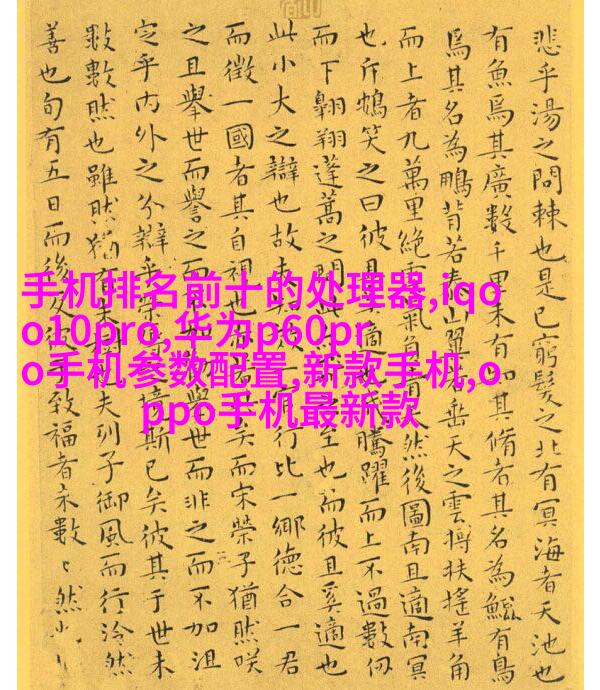 手机排名前十的处理器,iqo
o10pro,华为p60pr
o手机参数配置,新款手机,o
ppo手机最新款
悲乎湯之問棘也是已窮髮之北有冥海者天池也
有魚焉其廣數千里未有知其脩者其名為鯤有鳥
焉其名為鵬背若泰山翼若垂天之雲摶扶搖羊角
而上者九萬里絕雲氣負青天然後圖南且適南冥
也斥鴳笑之曰彼且奚適也我騰躍而上不過數仞
而下翱翔蓬蒿之間此之至也而彼且奚適也
此小大之辯也故夫一官行比一鄉德合一君
而徵一國者其自視也矣而宋榮子猶然咲
之且舉世而譽之而不加舉世而非之而不加沮
定乎內外之分辯乎榮境斯已矣彼其于世未
數數然也雖然猶有未夫列子御風而行泠然
善也旬有五日而後反彼致福者未數〻然也